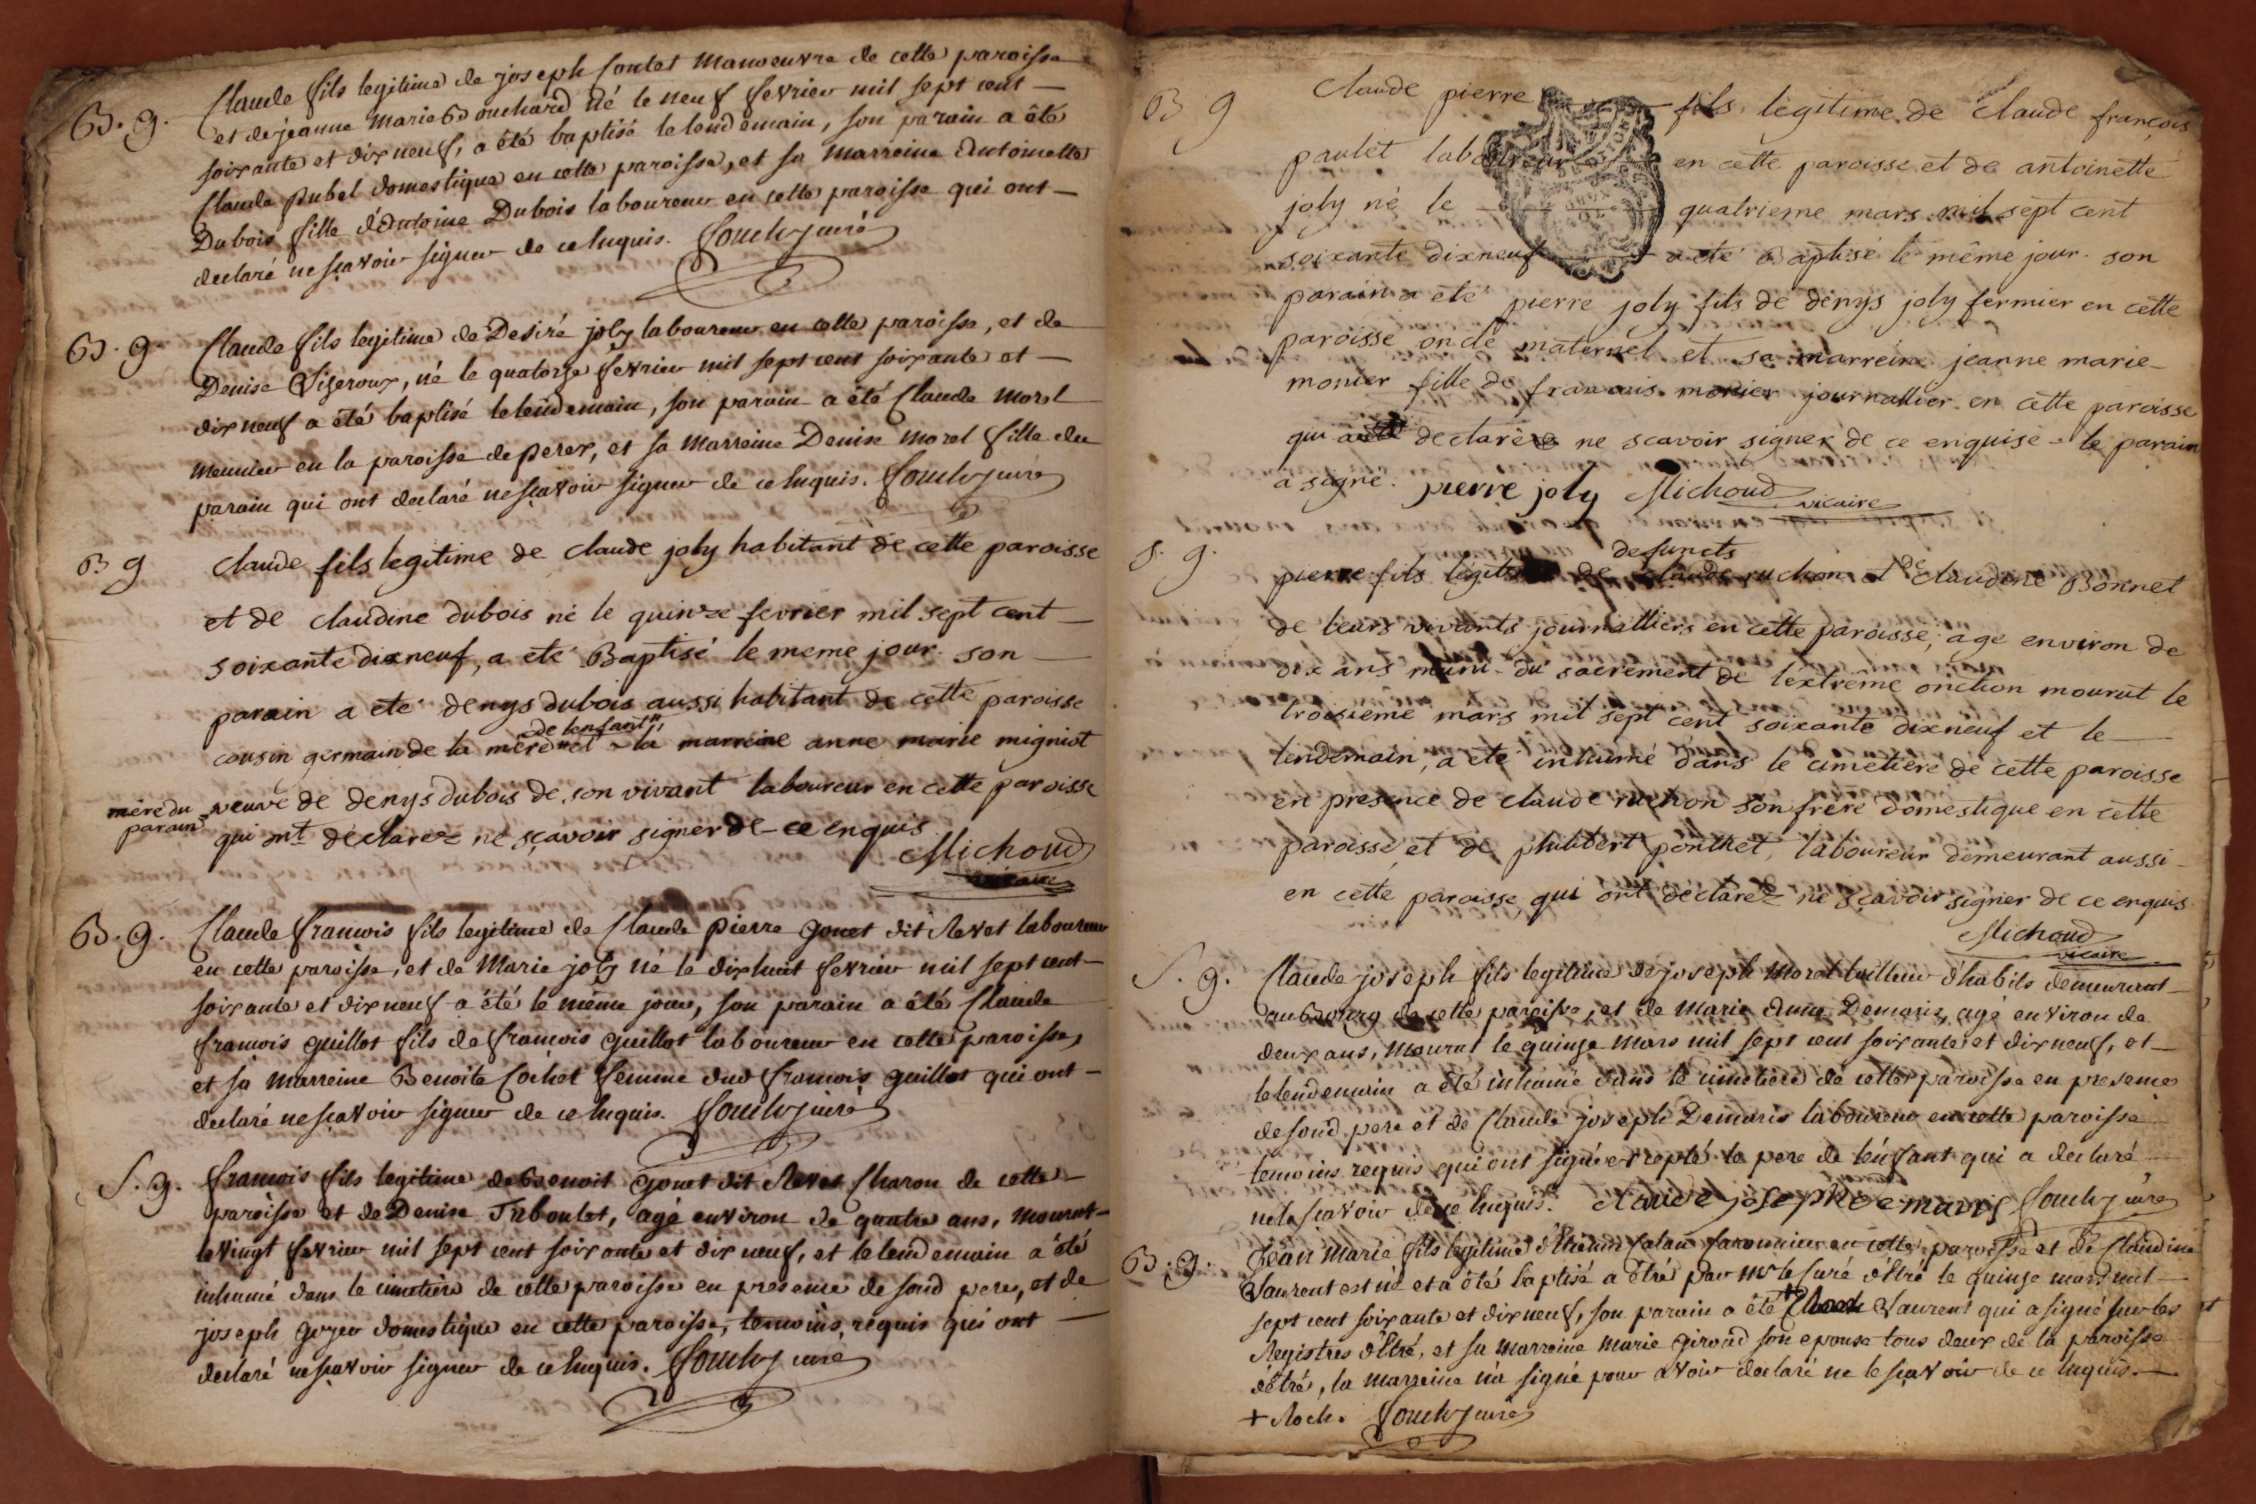 B. g. Claude fils legitime de joseph Contet Manoeuvre de cette paroisse
et de jeanne Marie Bouchard né le neuf fevrier mil sept cent
soixante et dix neuf, a été baptisé le lendemain, son parain a été
Claude Pubel domestique en cette paroisse, et sa Marreine Antoinette
Dubois fille d'Antoine Dubois laboureur en cette paroisse qui ont
declaré ne sçavoir signer de ce Enquis. curé
B. g. Claude fils legitime de Desiré joly laboureur en cette paroisse, et de
Denise Vigeroux, né le quatorze fevrier mil sept cent soixante et
dix neuf a été baptisé le lendemain, son parain a été Claude Morel
Meunier en la paroisse de perex, et sa Marreine Denise Morel fille du
parain qui ont declaré ne sçavoir signer de ce Enquis. curé
B g Claude fils legitime de claude joly habitant de cette paroisse
et de claudine dubois né le quinze fevrier mil sept cent
soixante dixneuf, a eté Baptisé le meme jour. son
parain a eté denys dubois aussi habitant de cette paroisse
de lenfant
cousin germain de la mere et la marreine anne marie migniot
mere du parain
veuve de denys dubois de son vivant laboureur en cette paroisse
qui ont declarez ne sçavoir signer de ce enquis
Michoud
vicaire
B. g. Claude francois fils legitime de Claude Pierre gonet dit Revet laboureur
en cette paroisse, et de Marie joly né le dixhuit fevrier mil sept cent
soixante et dix neuf a été le même jour, son parain a été Claude
françois guillot fils de francois guillot laboureur en cette paroisse,
et sa Marreine Benoite Cochet femme dud francois guillot qui ont
declaré ne sçavoir signer de ce Enquis. curé
S. g. francois fils legitime de Benoit gonet dit Revet Charon de cette
paroisse et de Denise Triboulet, agé environ de quatre ans, mourut
le vingt fevrier mil sept cent soixante et dix neuf, et le lendemain a été
inhumé dans le cimetiere de cette paroisse en presence de sond pere, et de
joseph goyer domestique en cette paroisse, temoins requis qui ont
declaré ne sçavoir signer de ce Enquis. curé
B g Claude pierre fils légitime de claude françois
paulet laboureur en cette paroisse et de antoinette
joly né le quatrieme mars mil sept cent
soixante dixneuf a eté Baptisé le même jour. son
parain a eté pierre joly fils de denys joly fermier en cette
paroisse oncle maternel et sa marreine jeanne marie
monier fille de francois monier journallier en cette paroisse
qui a declaré ne scavoir signer de ce enquise le parain
a signé. pierre joly Michoud
vicaire
defuncts
S. g. pierre fils légitime de claude ruchon et de claudine Bonnet
de leurs vivants journalliers en cette paroisse, agé environ de
dix ans muni du sacrement de l'extrême onction mourut le
troisieme mars mil sept cent soixante dixneuf et le
lendemain, a eté inhumé dans le cimetiere de cette paroisse
en presence de claude ruchon son frere domestique en cette
paroisse, et de philibert ponthet, laboureur demeurant aussi
en cette paroisse, qui ont declarez ne sçavoir signer de ce enquis
Michoud
vicaire
S. g. Claude joseph fils legitime de joseph Morel tailleur d'habits demeurant
au Bourg de cette paroisse, et de Marie Anne Demaris, agé environ de
deux ans, mourut le quinze Mars mil sept cent soixante et dix neuf, et
le lendemain a été inhumé dans le cimetiere de cette paroisse en presence
de sond. pere et de Claude joseph Demaris laboureur en cette paroisse
temoins requis qui ont signé excepté le pere de l'enfant qui a declaré
ne le sçavoir de ce Enquis. claude joseph demaris curé
B. g. Jean Marie fils legitime d'Etienne en cette paroisse et de Claudine
Vaurent est né et a été baptisé a êtré par Mr le Curé d'Etré le quinze mars mil
sept cent soixante et dix neuf, son parain a été + Vaurent qui a signé sur les
Registres d'Etré, et sa Marreine Marie giroud son epouse tous deux de la paroisse
d'étré, la Marreine n'a signé pour avoir declaré ne le sçavoir de ce Enquis.
+ Roch. curé